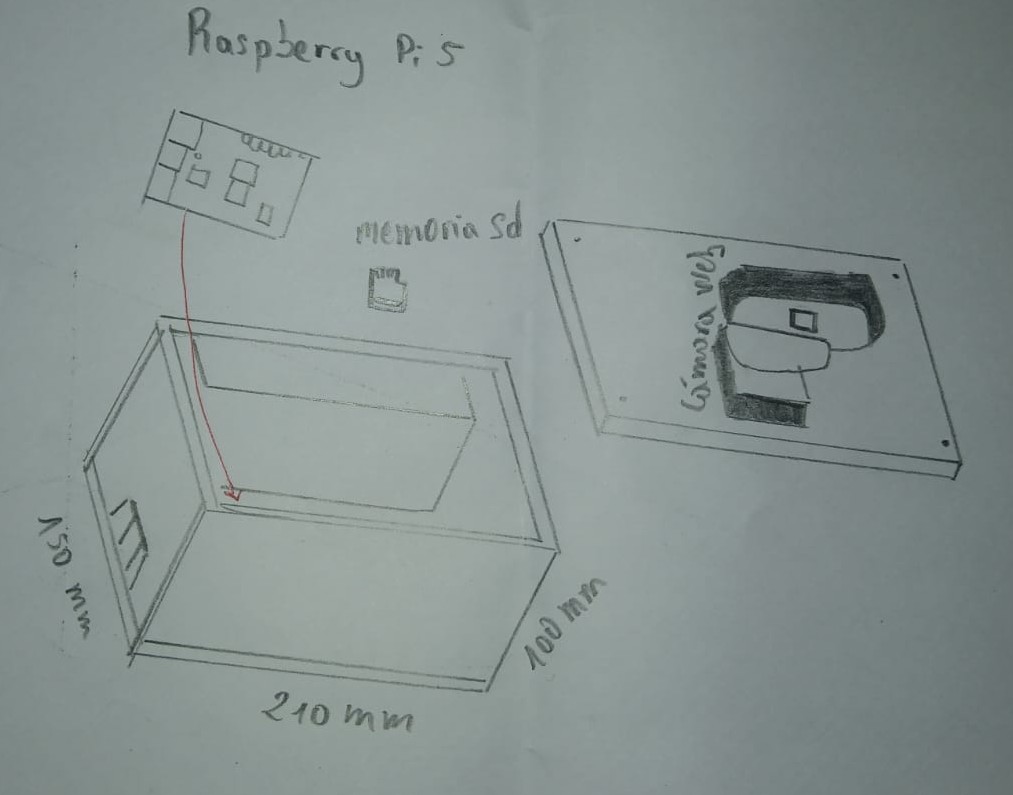 Raspberry Pi 5
memoria sd
Cámara web
150 mm
100 mm
210 mm